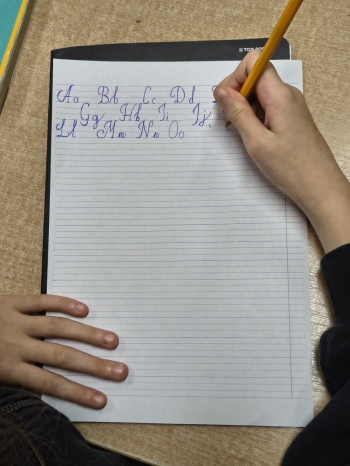 Aa Bb Cc Dd
Gg Hh Ii Jj
Ll Mm Nn Oo